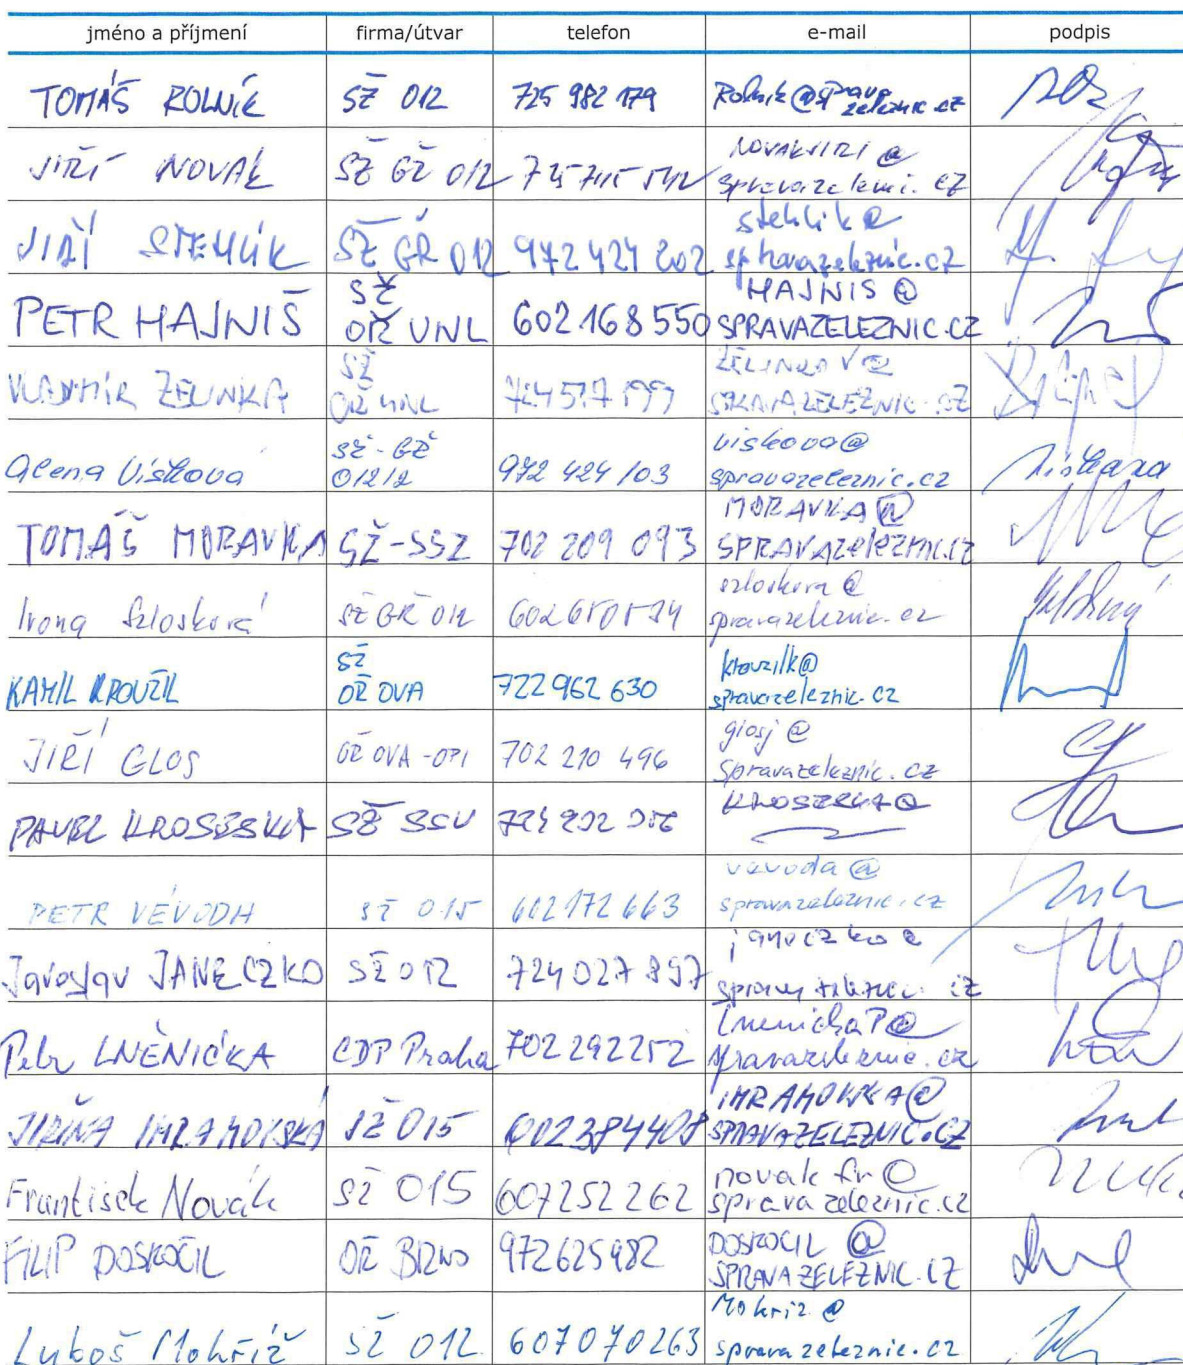 jméno a příjmení firma/útvar telefon e-mail podpis
TOMÁŠ ROLNÍK SŽ O12 725 982 179 Rolnik@sprava
zeleznic.cz
JIŘÍ NOVÁK SŽ GŘ O12 NOVAKJIRI@
JIŘÍ STEHLÍK SŽ GŘ O12 972 424 202 stehlik@
spravazeleznic.cz
PETR HAJNIŠ SŽ
OŘ UNL 602 168 550 HAJNIS@
SPRAVAZELEZNIC.CZ
VLADIMÍR ZELINKA SŽ
OŘ UNL
Alena Víšková SŽ-GŘ
O12/2 972 424 103 viskova@
spravazeleznic.cz
TOMÁŠ MORAVKA SŽ-SSZ 702 209 093 MORAVKA@
SPRAVAZELEZNIC.CZ
Ivona Szlosková SŽ GŘ O12 szloskova@
spravazeleznic.cz
KAMIL KROUŽIL SŽ
OŘ OVA 722 962 630 krouzilk@
spravazeleznic.cz
JIŘÍ GLOS OŘ OVA-OPI 702 210 496 glosj@
spravazeleznic.cz
PAVEL SŽ SSV
PETR VÉVODA SŽ O15 602 172 663 vevoda@
spravazeleznic.cz
Jaroslav JANECZKO SŽ O12 724 027 897 janeczko@
Petr LNĚNIČKA CDP Praha 702 292252 LnenickaP@
spravazeleznic.cz
JIŘINA IMRAMOVSKÁ SŽ O15 602384408 IMRAMOVSKA@
SPRAVAZELEZNIC.CZ
František Novák SŽ O15 607252262 novakfr@
spravazeleznic.cz
FILIP DOSKOČIL OŘ BRNO 972625482 DOSKOCIL@
SPRAVAZELEZNIC.CZ
Luboš Mokříž SŽ O12 607070263 Mokriz@
spravazeleznic.cz